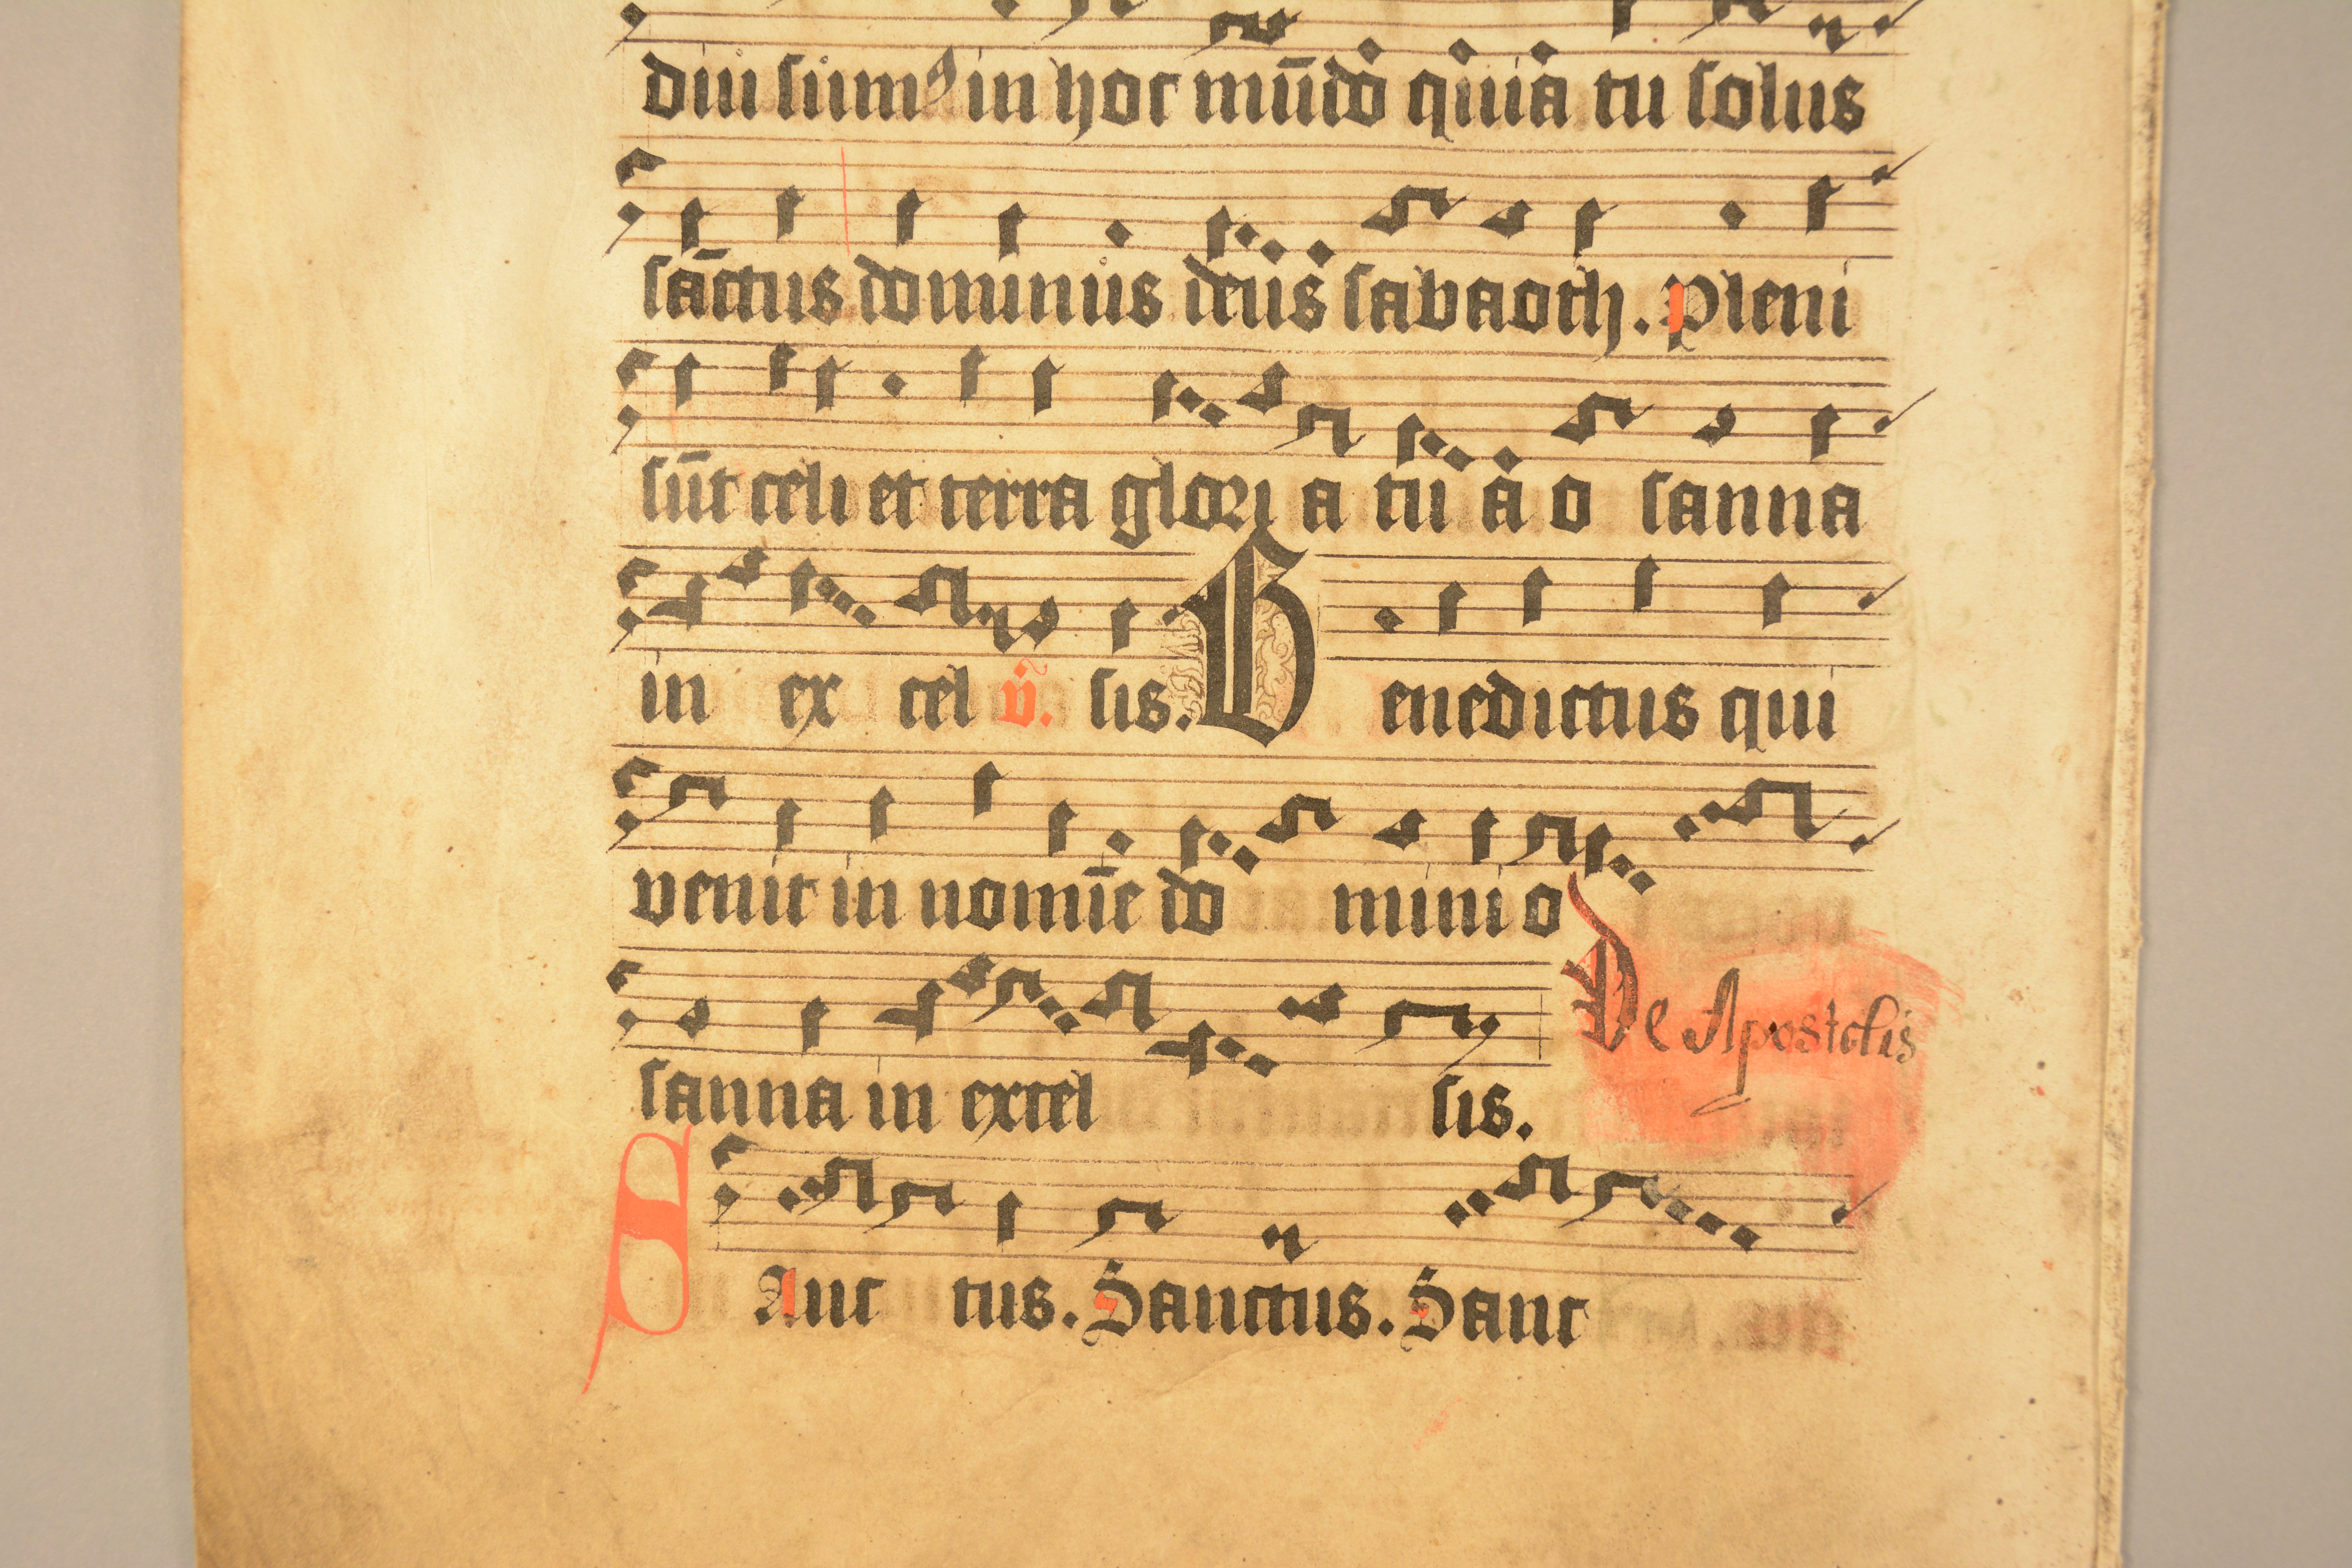 diu sum⁹ in hoc mūdo quia tu solus
sāctus dominus deus sabaoth. Pleni
sūt celi et terra glori a tu a o sanna
in ex cel v̄. sis. Benedictus qui
venit in nomīe do mini o
De Apostolis
sanna in excel sis.
SAnc tus. Sanctus. Sanc